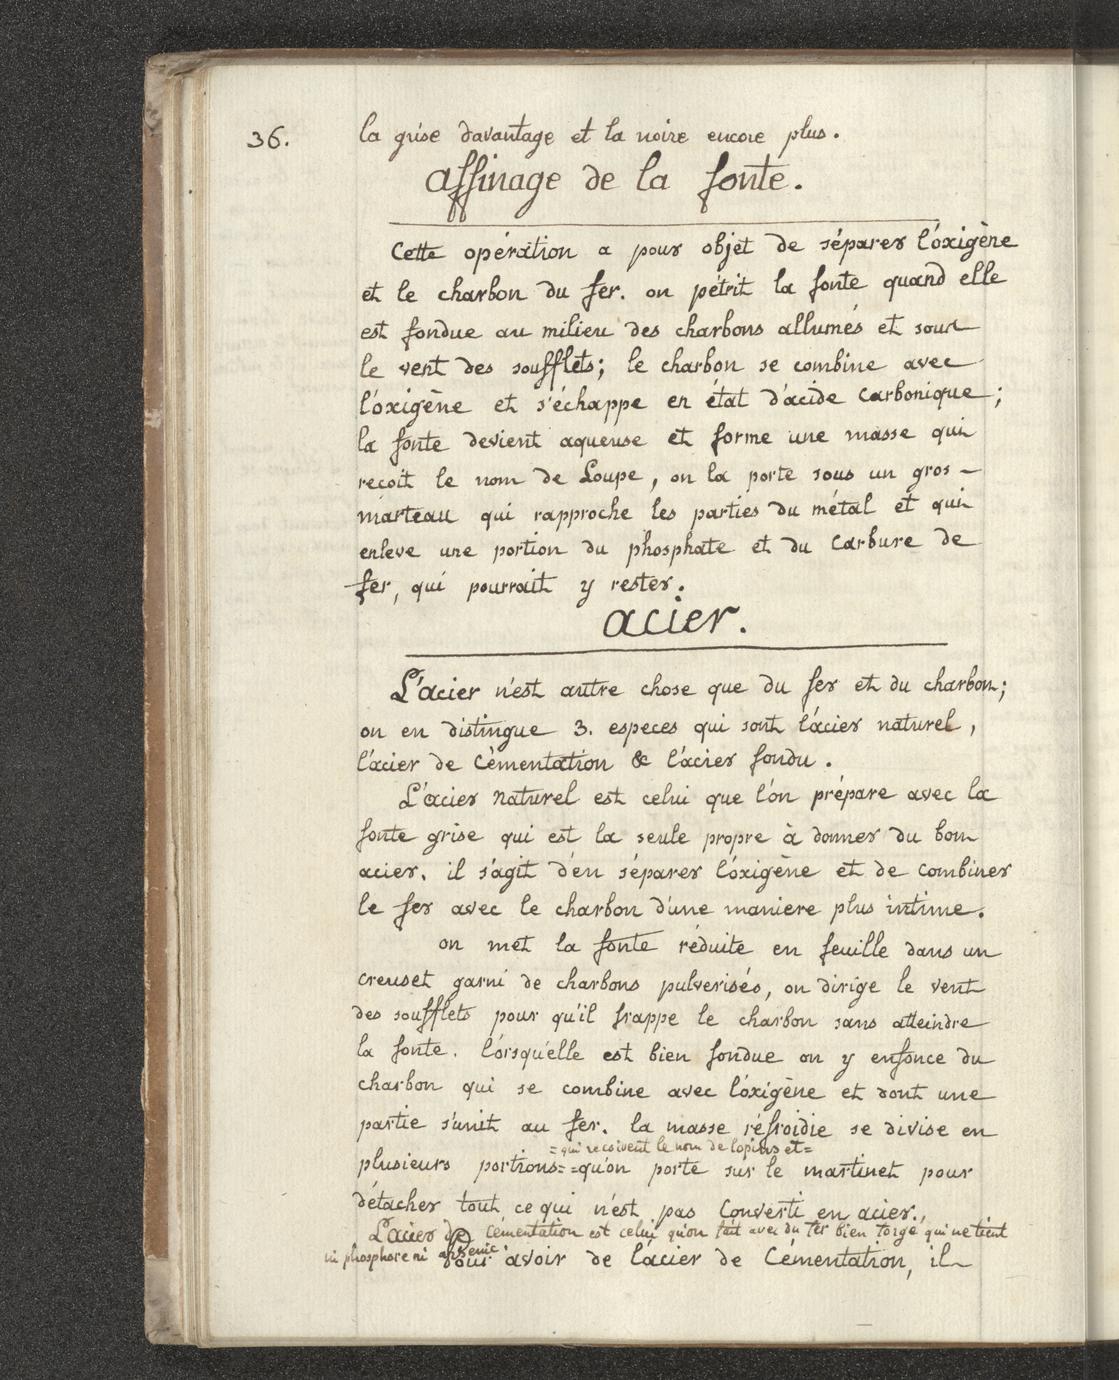 36.
la grise davantage et la noire encore plus.
affinage de la fonte.
Cette opération a pour objet de séparer l'oxigène
et le charbon du fer. on pétrit la fonte quand elle
est fondue au milieu des charbons allumés et sous
le vent des soufflets; le charbon se combine avec
l'oxigène et s'échappe en état d'acide carbonique;
la fonte devient aqueuse et forme une masse qui
recoit le nom de Loupe, on la porte sous un gros
marteau qui rapproche les parties du métal et qui
enleve une portion du phosphate et du carbure de
fer, qui pourrait y rester.
acier.
L'acier n'est autre chose que du fer et du charbon;
on en distingue 3. especes qui sont l'acier naturel,
l'acier de Cémentation & l'acier fondu.
L'acier naturel est celui que l'on prépare avec la
fonte grise qui est la seule propre à donner du bon
acier. il s'agit d'en séparer l'oxigène et de combiner
le fer avec le charbon d'une maniere plus intime.
on met la fonte réduite en feuille dans un
creuset garni de charbons pulverisés, on dirige le vent
des soufflets pour qu'il frappe le charbon sans atteindre
la fonte. lorsqu'elle est bien fondue on y enfonce du
charbon qui se combine avec l'oxigène et dont une
partie s'unit au fer. la masse réfroidie se divise en
=qui recoivent le nom de lopins et=
plusieurs portions= =qu'on porte sur le martinet pour
détacher tout ce qui n'est pas Converti en acier.
L'acier de cémentation est celui qu'on fait avec du fer bien forgé qui ne tient
ni phosphore ni arsenic.
Pour avoir de l'acier de Cémentation, il